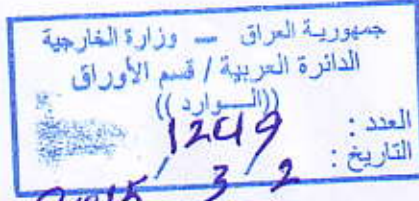 جمهورية العراق — وزارة الخارجية
الدائرة العربية / قسم الأوراق
((الـــوارد))
العدد :
التاريخ : 2 / 3 /